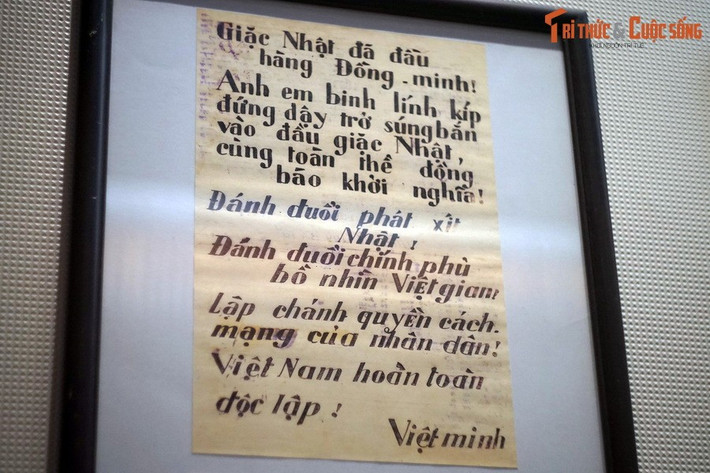 TRI THỨC & CUỘC SỐNG
Giặc Nhật đã đầu
hàng Đồng-minh!
Anh em binh lính kíp
đứng dậy trở súng bắn
vào đầu giặc Nhật,
cùng toàn thể đồng
bào khởi nghĩa!
Đánh đuổi phát xít
Nhật!
Đánh đuổi chính phủ
bồ nhìn Việt gian!
Lập chánh quyền cách-
mạng của nhân dân!
Việt Nam hoàn toàn
độc lập!
Việt minh